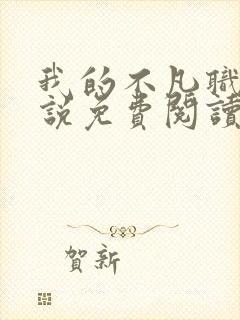 我的不凡職
説免費閱讀
賀新